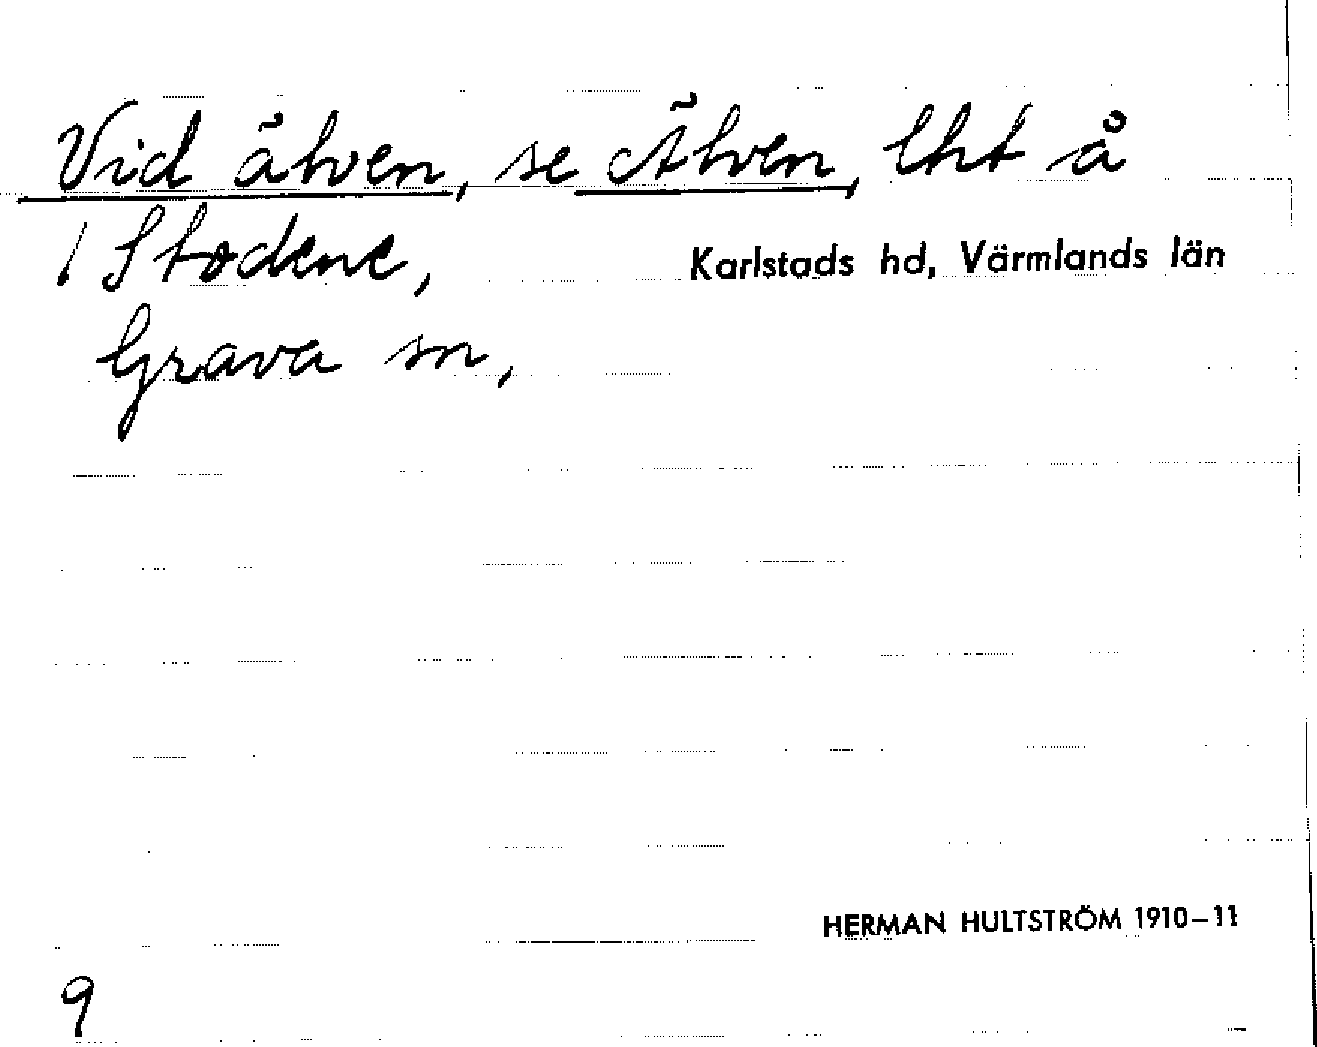 Vid älven, se Älven, lht å
/ Stodene, Karlstads hd, Värmlands län
Grava sn,
HERMAN HULTSTRÖM 1910–11
9